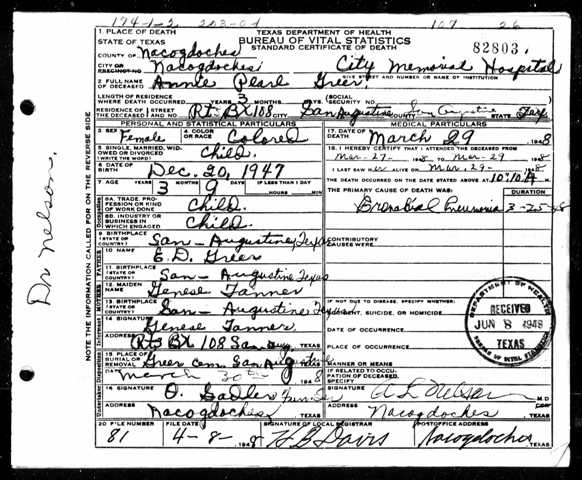 174-1-2 203-04 107 26
1 PLACE OF DEATH TEXAS DEPARTMENT OF HEALTH
STATE OF TEXAS BUREAU OF VITAL STATISTICS
COUNTY OF Nacogdoches STANDARD CERTIFICATE OF DEATH 82803
CITY OR PRECINCT NO. Nacogdoches City Memorial Hospital
GIVE STREET AND NUMBER OR NAME OF INSTITUTION
2 FULL NAME OF DECEASED Annie Pearl Greer
LENGTH OF RESIDENCE WHERE DEATH OCCURRED YEARS 3 MONTHS DAYS SOCIAL SECURITY NO.
RESIDENCE OF THE DECEASED STREET AND NO. Rt- BX 108 CITY San Augustine COUNTY San Augustine STATE Tex
PERSONAL AND STATISTICAL PARTICULARS MEDICAL PARTICULARS
3 SEX Female 4 COLOR OR RACE Colored 17. DATE OF DEATH March 29 1948
5 SINGLE, MARRIED, WIDOWED OR DIVORCED (WRITE THE WORD) Child. 18. I HEREBY CERTIFY THAT I ATTENDED THE DECEASED FROM
Mar-27- 1948 TO Mar-29 1948
6 DATE OF BIRTH Dec. 20, 1947 I LAST SAW ALIVE ON Mar. 29- 1948
7 AGE YEARS 3 MONTHS 9 DAYS IF LESS THAN 1 DAY HOURS MIN THE DEATH OCCURRED ON THE DATE STATED ABOVE AT 10:10 A M
THE PRIMARY CAUSE OF DEATH WAS: DURATION
8A. TRADE, PROFESSION OR KIND OF WORK DONE Child. Bronchial Pneumonia 3-25-48
8B. INDUSTRY OR BUSINESS IN WHICH ENGAGED Child.
9 BIRTHPLACE (STATE OR COUNTRY) San-Augustine, Texas CONTRIBUTORY CAUSES WERE:
10 NAME E. D. Greer
11 BIRTHPLACE (STATE OR COUNTRY) San-Augustine Texas
12 MAIDEN NAME Genese Tanner
13 BIRTHPLACE (STATE OR COUNTRY) San-Augustine Texas IF NOT DUE TO DISEASE, SPECIFY WHETHER:
ACCIDENT, SUICIDE, OR HOMICIDE
14 SIGNATURE Genese Tanner DATE OF OCCURRENCE
ADDRESS Rt3 BX 108 San Aug. TEXAS PLACE OF OCCURRENCE
15 PLACE OF BURIAL OR REMOVAL Greer Cem. San Augustine TEXAS MANNER OR MEANS
DATE March 30th 1948 IF RELATED TO OCCUPATION OF DECEASED, SPECIFY
16 SIGNATURE O. Sadler SIGNATURE A L Nelson M.D.
ADDRESS Nacogdoches TEXAS ADDRESS Nacogdoches TEXAS
20 FILE NUMBER FILE DATE SIGNATURE OF LOCAL REGISTRAR POSTOFFICE ADDRESS
81 4-8- 1948 H B Davis Nacogdoches TEXAS
DEPARTMENT OF HEALTH
RECEIVED
JUN 8 1948
TEXAS
BUREAU OF VITAL STATISTICS
Dr Nelson,
NOTE THE INFORMATION CALLED FOR ON THE REVERSE SIDE
FATHER
MOTHER